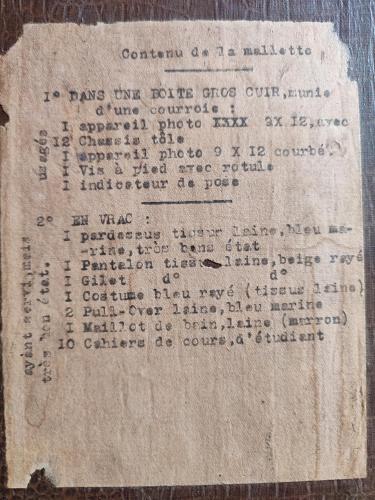 Contenu de la mallette
1° DANS UNE BOITE GROS CUIR,munie
d'une courroie :
I appareil photo XXXX 9X I2,avec
I2 Chassis tôle
I appareil photo 9 X I2 courbé.
I Vis à pied avec rotule
I indicateur de pose
usagés
2° EN VRAC :
I pardessus tissur laine,bleu ma-
-rine,très bons état
I Pantalon tissus laine,beige rayé
I Gilet d° d°
I Costume bleu rayé (tissus laine)
2 Pull-Over laine,bleu marine
I Maillot de bain,laine (marron)
IO Cahiers de cours,d'étudiant
ayant servi,mais
très bon état.